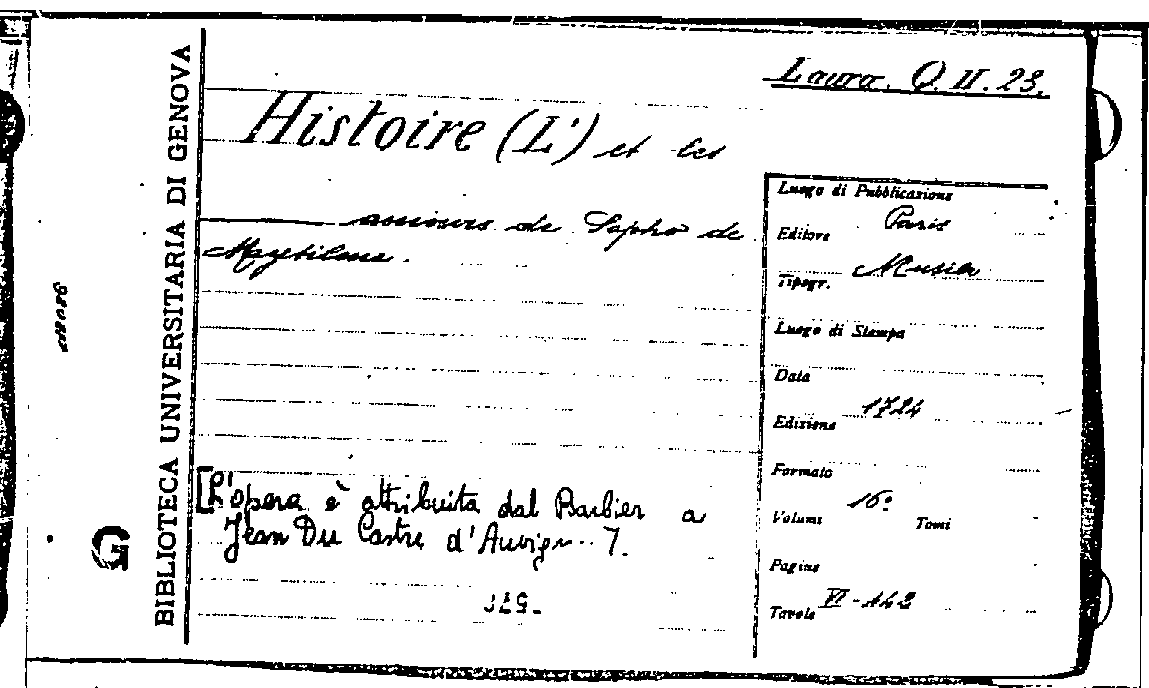 Laura. Q. II. 23.
Histoire (L') et les
amours de Sapho de
Maytilene.
BIBLIOTECA UNIVERSITARIA DI GENOVA
G
Luogo di Pubblicazione
Paris
Editore
Musier
Tipogr.
Luogo di Stampa
Data
1724
Edizione
Formato
16º
Volumi Tomi
Pagine
VI-142
Tavole
[L'opera è attribuita dal Barbier a
Jean Du Castre d'Auvign